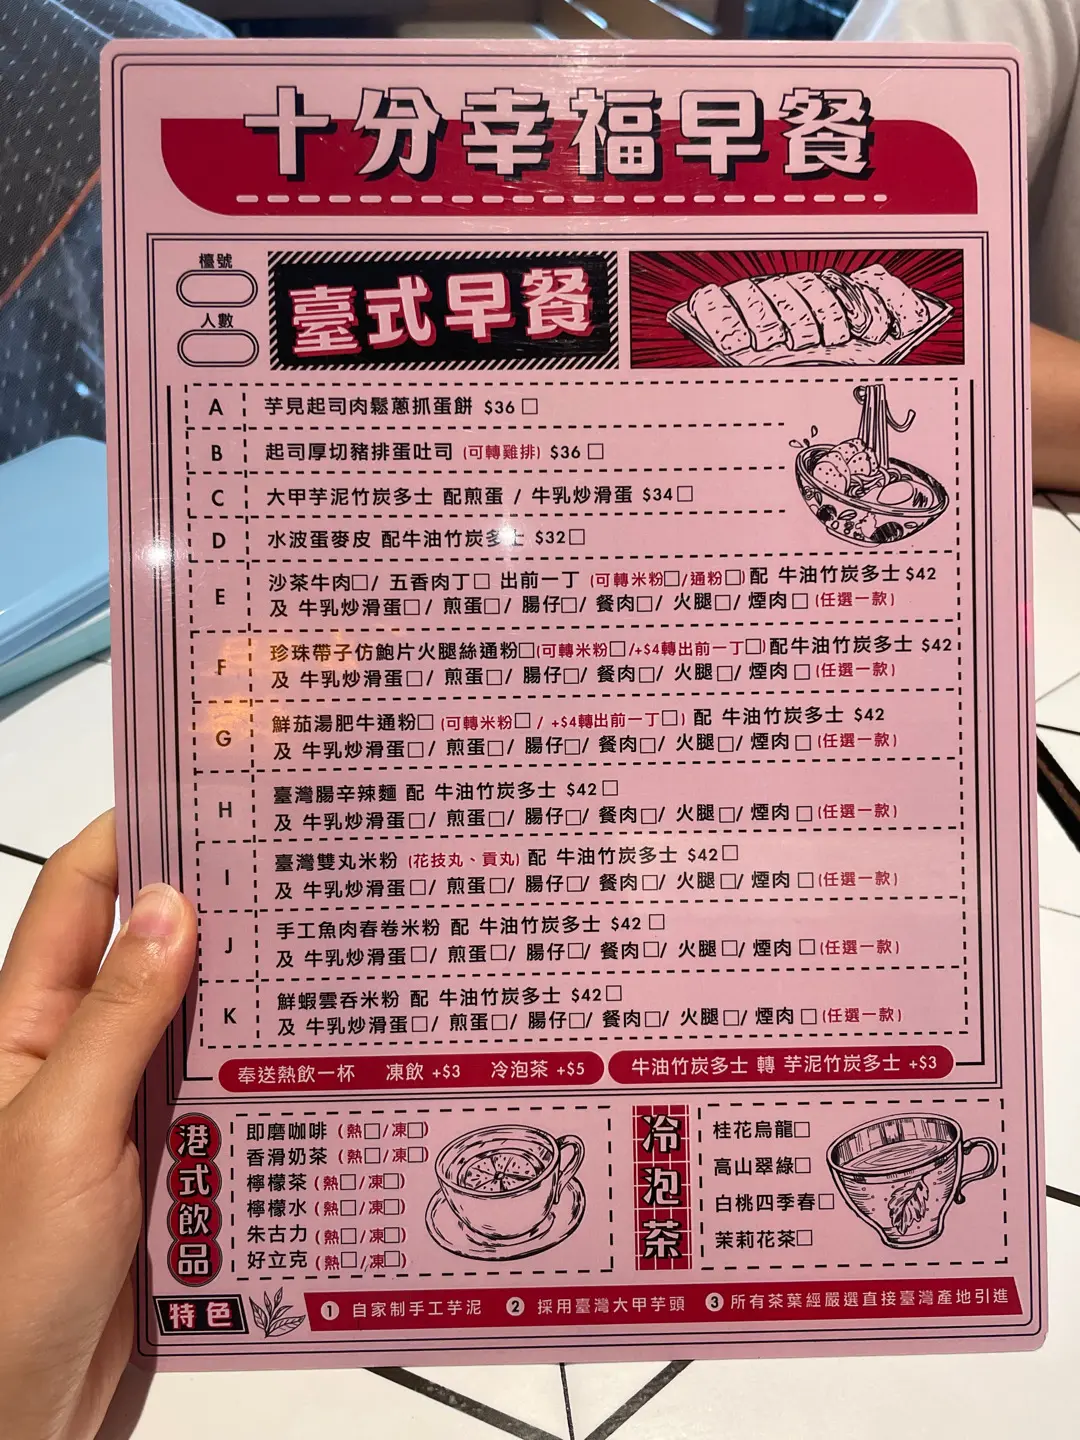 十分幸福早餐
檯號
人數
臺式早餐
A 芋見起司肉鬆蔥抓蛋餅 $36 □
B 起司厚切豬排蛋吐司 (可轉雞排) $36 □
C 大甲芋泥竹炭多士 配煎蛋 / 牛乳炒滑蛋 $34 □
D 水波蛋麥皮 配牛油竹炭多士 $32 □
E 沙茶牛肉□/ 五香肉丁□ 出前一丁 (可轉米粉□/通粉□) 配 牛油竹炭多士 $42
及 牛乳炒滑蛋□/ 煎蛋□/ 腸仔□/ 餐肉□/ 火腿□/ 煙肉□ (任選一款)
F 珍珠帶子仿鮑片火腿絲通粉□(可轉米粉□/+$4轉出前一丁□)配牛油竹炭多士 $42
及 牛乳炒滑蛋□/ 煎蛋□/ 腸仔□/ 餐肉□/ 火腿□/ 煙肉□ (任選一款)
G 鮮茄湯肥牛通粉□ (可轉米粉□ / +$4轉出前一丁□) 配 牛油竹炭多士 $42
及 牛乳炒滑蛋□/ 煎蛋□/ 腸仔□/ 餐肉□/ 火腿□/ 煙肉□ (任選一款)
H 臺灣腸辛辣麵 配 牛油竹炭多士 $42 □
及 牛乳炒滑蛋□/ 煎蛋□/ 腸仔□/ 餐肉□/ 火腿□/ 煙肉□ (任選一款)
I 臺灣雙丸米粉 (花技丸、貢丸) 配 牛油竹炭多士 $42 □
及 牛乳炒滑蛋□/ 煎蛋□/ 腸仔□/ 餐肉□/ 火腿□/ 煙肉□ (任選一款)
J 手工魚肉春卷米粉 配 牛油竹炭多士 $42 □
及 牛乳炒滑蛋□/ 煎蛋□/ 腸仔□/ 餐肉□/ 火腿□/ 煙肉□ (任選一款)
K 鮮蝦雲吞米粉 配 牛油竹炭多士 $42 □
及 牛乳炒滑蛋□/ 煎蛋□/ 腸仔□/ 餐肉□/ 火腿□/ 煙肉□ (任選一款)
奉送熱飲一杯 凍飲 +$3 冷泡茶 +$5
牛油竹炭多士 轉 芋泥竹炭多士 +$3
港式飲品
即磨咖啡 (熱□/凍□)
香滑奶茶 (熱□/凍□)
檸檬茶 (熱□/凍□)
檸檬水 (熱□/凍□)
朱古力 (熱□/凍□)
好立克 (熱□/凍□)
冷泡茶
桂花烏龍□
高山翠綠□
白桃四季春□
茉莉花茶□
特色
1 自家制手工芋泥 2 採用臺灣大甲芋頭 3 所有茶葉經嚴選直接臺灣產地引進